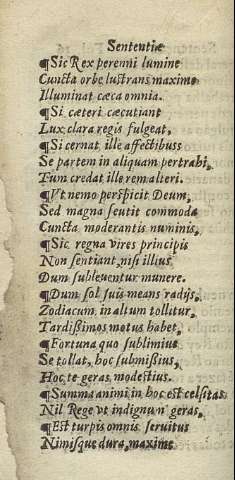 Sententiæ
¶Sic Rex perenni lumine
Cuncta orbe lustrans maximo
Illuminat cæca omnia.
¶Si cæteri cæcutiant
Lux clara regis fulgeat,
¶Si cernat ille affectibus
Se partem in aliquam pertrahi,
Tum credat ille rem alteri.
¶Vt nemo perspicit Deum,
Sed magna sentit commoda
Cuncta moderantis numinis,
¶Sic regna vires principis
Non sentiant, nisi illius
Dum subleuentur munere.
¶Dum sol suis means radijs,
Zodiacum in altum tollitur,
Tardissimos motus habet,
¶Fortuna quo sublimius
Se tollat, hoc submissius,
Hoc te geras modestius.
¶Summa animi in hoc est celsitas
Nil Rege vt indignū geras,
¶Est turpis omnis seruitus
Nimisque dura, maxime